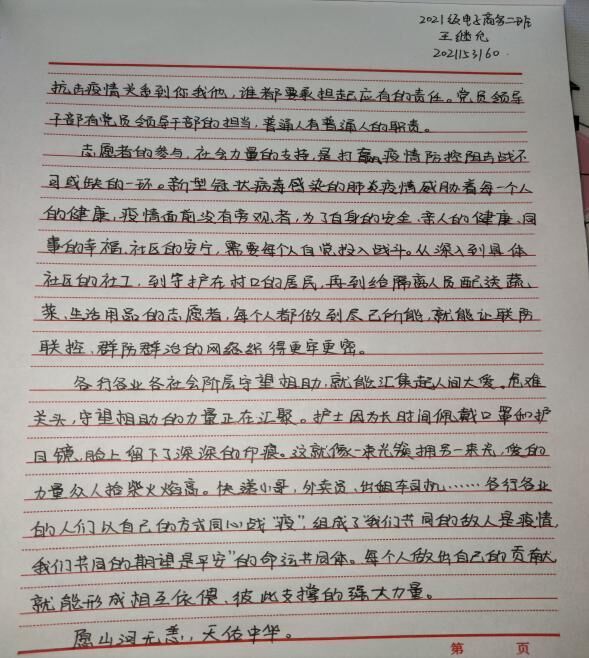 2021级电子商务二班
王继允
202153160
抗击疫情关系到你我他，谁都要承担起应有的责任。党员领导
干部有党员领导干部的担当，普通人有普通人的职责。
志愿者的参与，社会力量的支持，是打赢疫情防控阻击战不
可或缺的一环。新型冠状病毒感染的肺炎疫情威胁着每一个人
的健康，疫情面前没有旁观者，为了自身的安全、亲人的健康、同
事的幸福、社区的安宁，需要每个人自觉投入战斗。从深入到具体
社区的社工，到守护在村口的居民，再到给隔离人员配送蔬、
菜、生活用品的志愿者，每个人都做到尽己所能，就能让联防
联控、群防群治的网络织得更牢更密。
各行各业各社会阶层守望相助，就能汇集起人间大爱。危难
关头，守望相助的力量正在汇聚。护士因为长时间佩戴口罩和护
目镜，脸上留下了深深的印痕。这就像一束光簇拥另一束光，爱的
力量众人拾柴火焰高。快递小哥，外卖员、出租车司机……各行各业
的人们以自己的方式同心战“疫”，组成了“我们共同的敌人是疫情，
我们共同的期望是平安”的命运共同体。每个人做出自己的贡献
就能形成相互依偎、彼此支撑的强大力量。
愿山河无恙，天佑中华。
第 页